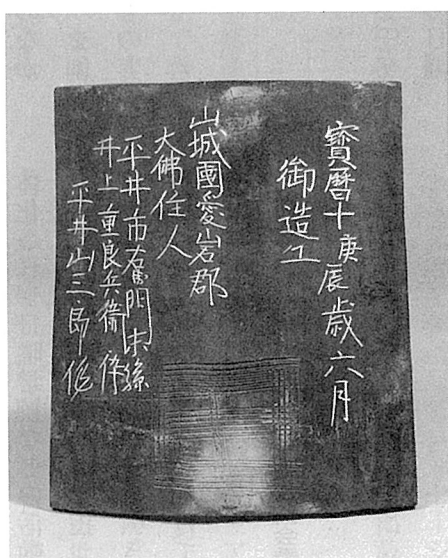 寳暦十庚辰歳六月
御造工
山城國愛宕郡
大佛住人
平井市右衛門末孫
井上重良兵衞倅
平井山三郎作